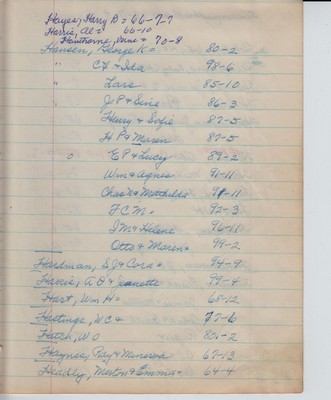 Hayes, Harry B = 66-7-7
Harris, Al = 66-10
Hawthorne, Verne = 70-8
Hansen, George K = 80-2
" C H & Ida 98-6
" Lars 85-10
" J P & Sine 86-3
" Henry & Sofie 87-5
" H P & Maren 87-5
o E P & Lucy 89-2
Wm & Agnes 91-11
Chas N & Mathilda 91-11
F. C. M. 92-3
J M & Helene 96-11
Otto & Maren 99-2
Hardman, S J & Cora = 94-9
Harris, A O & Jeanette 99-4
Hart, Wm H = 68-12
Hastings, W C & 77-6
Hatch, W O 80-2
Haynes, Ray & Minerva 67-13
Headly, Merton & Emma = 64-4